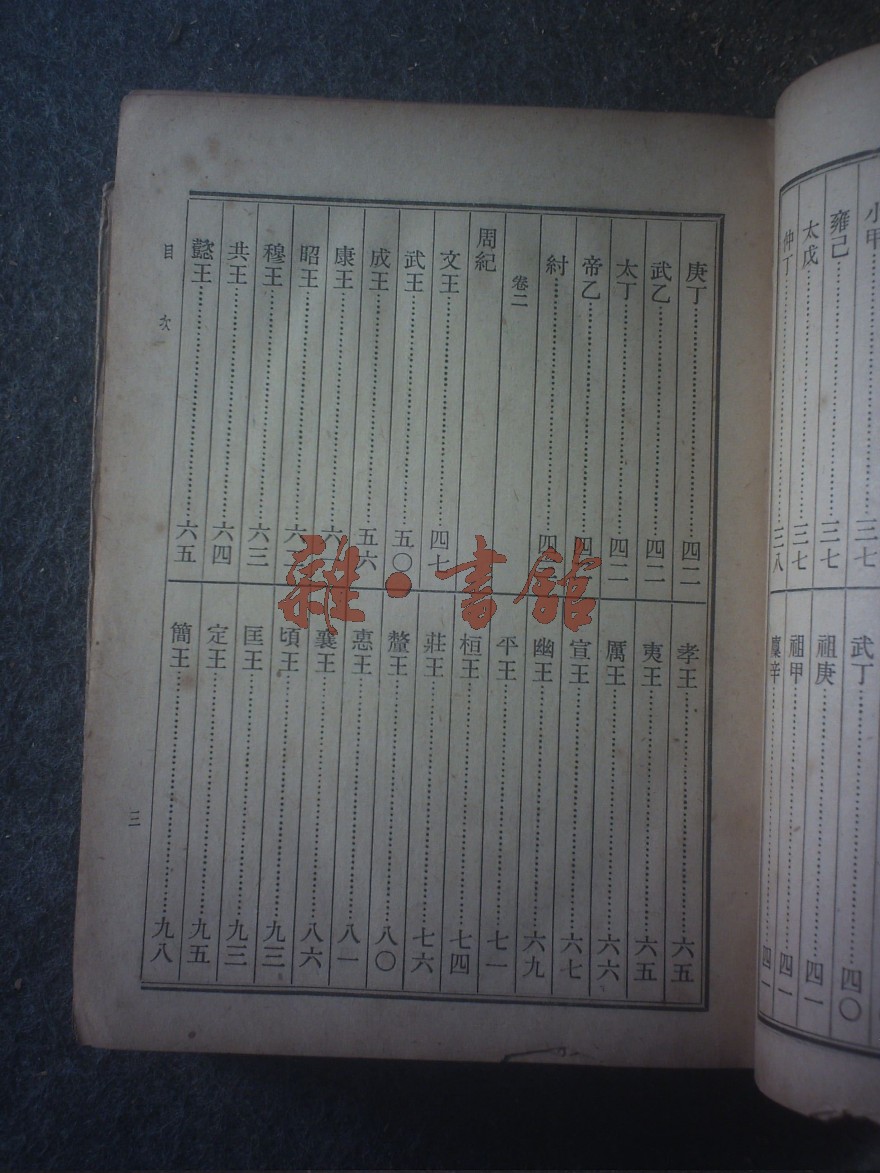 小甲……三七
雍己……三七
太戊……三七
仲丁……三八
武丁……四〇
祖庚……四一
祖甲……四一
廩辛……四一
庚丁……四二
武乙……四二
太丁……四二
帝乙……四
紂……四
卷二
周紀
文王……四七
武王……五〇
成王……五六
康王……六
昭王……六
穆王……六三
共王……六四
懿王……六五
孝王……六五
夷王……六五
厲王……六六
宣王……六七
幽王……六九
平王……七一
桓王……七四
莊王……七六
釐王……八〇
惠王……八一
襄王……八六
頃王……九三
匡王……九三
定王……九五
簡王……九八
目次
三
雜·書館